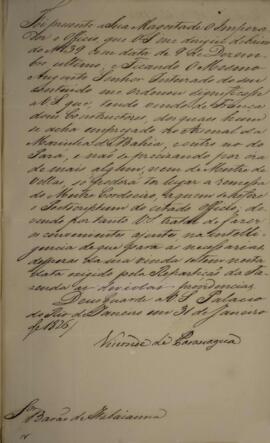 Foi presente a Sua Magestade O Impera
dor o Officio que V. S. me dirigio debaixo
do Nº 39 em data de 9 de Dezem
bro ultimo; e Ficando O Mesmo
Augusto Senhor Inteirado do seu
contendo me ordenou significasse
a V. S. que, tendo vindo de França
dois Constructores, dos quaes hum
se acha empregado no Arsenal da
Marinha da Bahia, e outro no do
Pará, e não se precisando por ora
de mais algum, nem de Mestre de
Vellas, se poderá ter lugar a remessa
do Mestre Cordoeiro, a quem se refere
o
do citado Officio, de
vendo portanto V. S. tratar de fazer
o conveniente ajuste na intelli
gencia de que para as necessarias
despezas da sua vinda se tem nesta
data exigido pela Repartição da Fa
zenda as devidas providencias.
Deus guarde a V. S. Palacio
do Rio de Janeiro em 31 de Janeiro
de 1826
Visconde de Paranaguá
Snr. Barão de Itabaianna